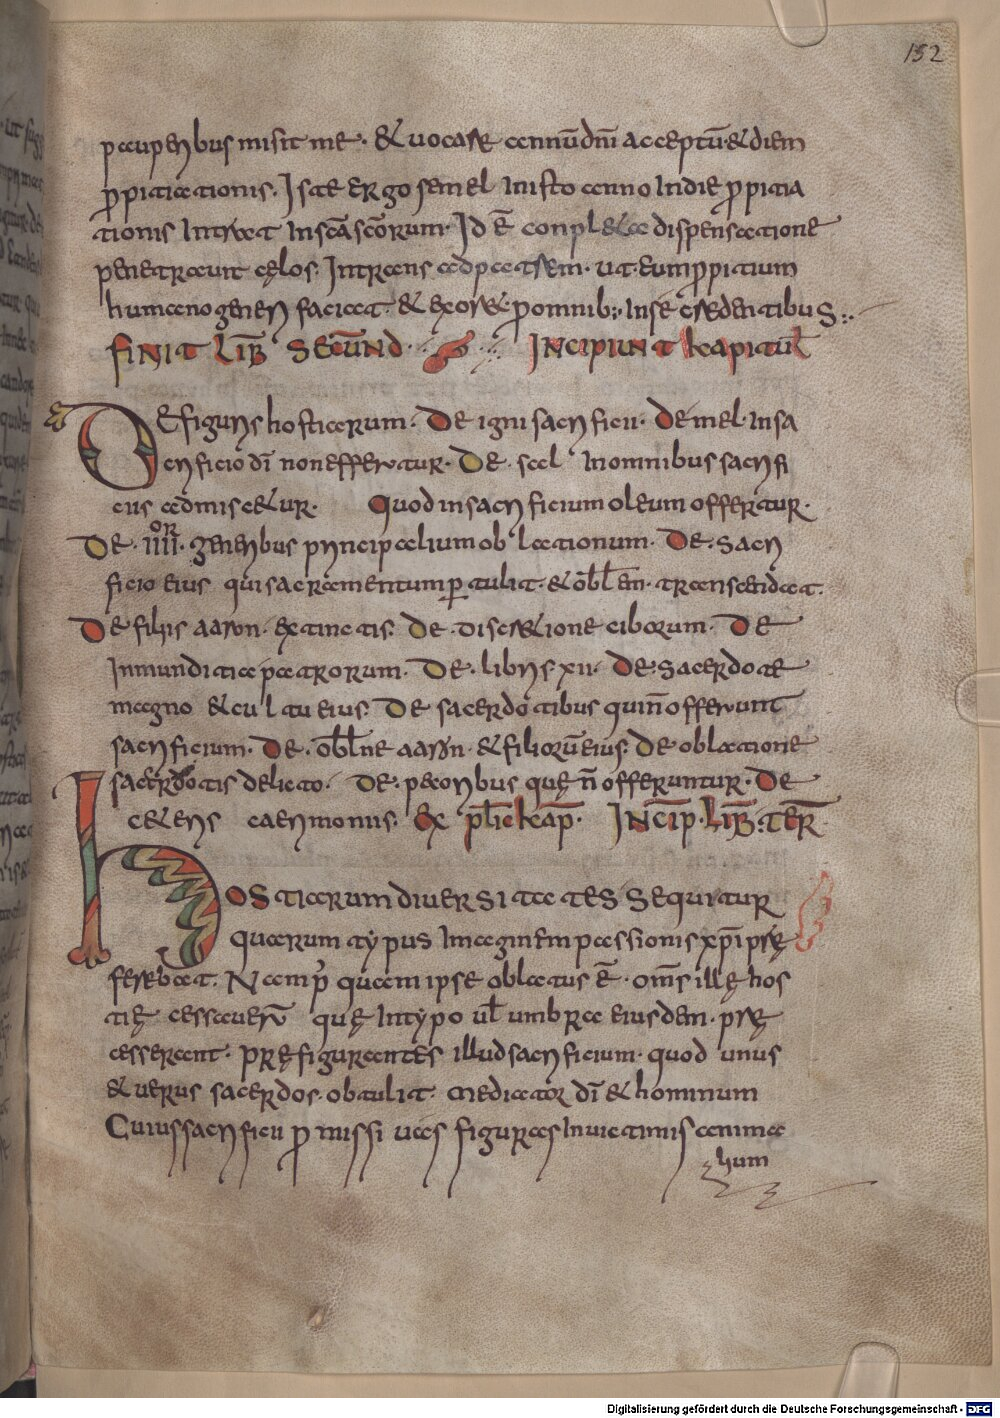 152
pauperibus misit me · & uocare annū dnī acceptū · & diem
p̄pitiationis · Iste ergo semel in isto anno In die p̄pitia
tionis Intrat In sc̄a sc̄orum · Id ē conpl&a dispensatione
penetrauit cęlos · Intrans ad patrem · ut eum p̄pitium
humano generi faciat · & exor& · pro omnib; In se credentibus :·
FINIT LIB̄ SECŪND · INCIPIUNT KAPITUL̄
De figuris hostiarum · De igni sacrificii · De mel · In sa
crificio dī non offeratur · De · sal · In omnibus sacrifi
ciis admisc&ur · Quod in sacrificium oleum offeratur ·
De · IIIIOR · generibus principalium oblationum · De · sacri
ficio eius qui sacramentum p̄tulit · & obl̄em · transcendat ·
De filiis aaron · extinctis · De · discr&ione ciborum · De
Inmunditia patrorum · De · libris xii · De · sacerdote
magno & cultu eius · De sacerdotibus qui n̄ offerunt
sacrificium · De · obl̄ne aaron · & filiorū eius · De oblatione
sacerdotis delicto · De · pecoribus quę n̄ offeruntur · De
c&eris caerimoniis · Ex pl̄ic kap̄ · INCIP̄ · LIB̄ : TER̄
HOSTIARUM DIVERSITATES SEQUITUR
quarum typus Imaginem passionis xp̄i prę
ferebat · Nam p̄ quam ipse oblatus ē · om̄s illę hos
tię cessauer̄ quę In typo ul̄ umbra eiusdem · prę
cesserant · pręfigurantes illud sacrificium · quod unus
& uerus sacerdos · obtulit · mediator dī & hominum
Cuius sacrificii p̄missiuas figuras In uictimis anima
lium
Digitalisierung gefördert durch die Deutsche Forschungsgemeinschaft - DFG